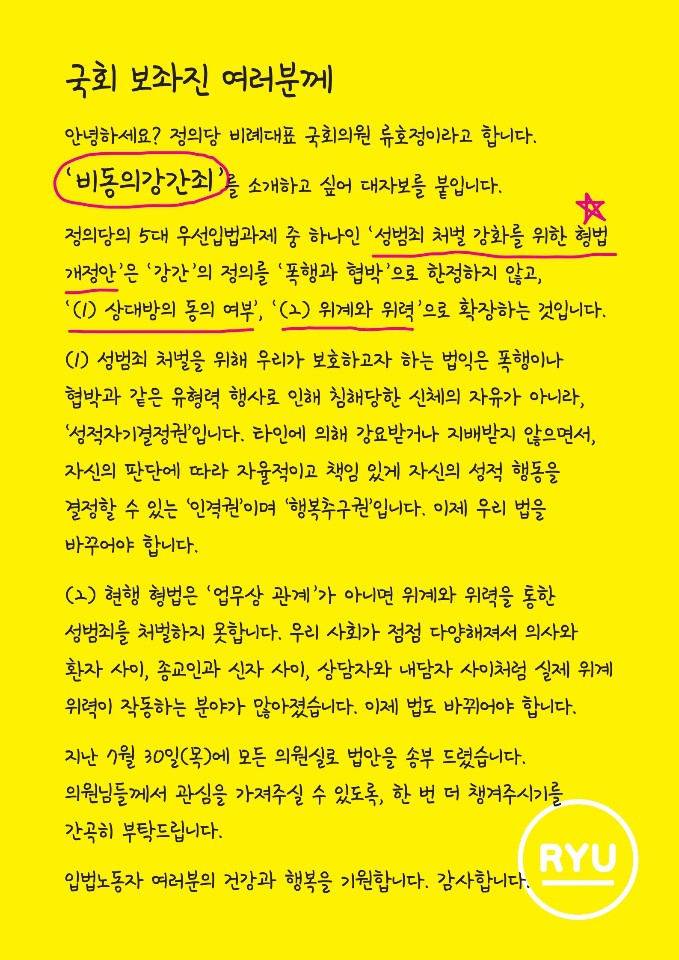 국회 보좌진 여러분께
안녕하세요? 정의당 비례대표 국회의원 류호정이라고 합니다.
'비동의강간죄'를 소개하고 싶어 대자보를 붙입니다.
정의당의 5대 우선입법과제 중 하나인 '성범죄 처벌 강화를 위한 형법
개정안'은 '강간'의 정의를 '폭행과 협박'으로 한정하지 않고,
'(1) 상대방의 동의 여부', '(2) 위계와 위력'으로 확장하는 것입니다.
(1) 성범죄 처벌을 위해 우리가 보호하고자 하는 법익은 폭행이나
협박과 같은 유형력 행사로 인해 침해당한 신체의 자유가 아니라,
'성적자기결정권'입니다. 타인에 의해 강요받거나 지배받지 않으면서,
자신의 판단에 따라 자율적이고 책임 있게 자신의 성적 행동을
결정할 수 있는 '인격권'이며 '행복추구권'입니다. 이제 우리 법을
바꾸어야 합니다.
(2) 현행 형법은 '업무상 관계'가 아니면 위계와 위력을 통한
성범죄를 처벌하지 못합니다. 우리 사회가 점점 다양해져서 의사와
환자 사이, 종교인과 신자 사이, 상담자와 내담자 사이처럼 실제 위계
위력이 작동하는 분야가 많아졌습니다. 이제 법도 바뀌어야 합니다.
지난 7월 30일(목)에 모든 의원실로 법안을 송부 드렸습니다.
의원님들께서 관심을 가져주실 수 있도록, 한 번 더 챙겨주시기를
간곡히 부탁드립니다.
입법노동자 여러분의 건강과 행복을 기원합니다. 감사합니다.
RYU